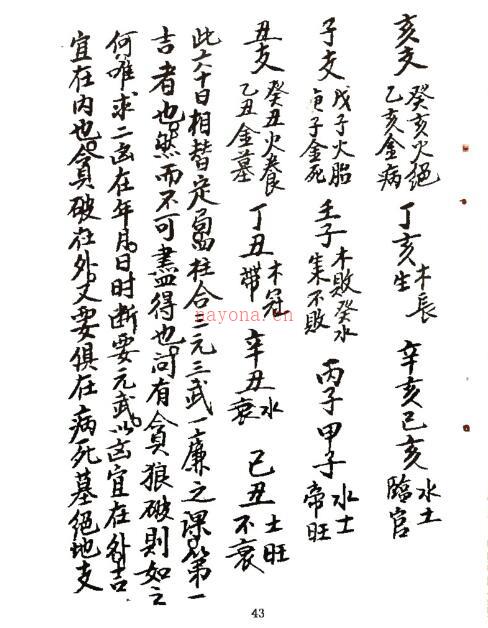 亥支 癸亥火絕 乙亥金病 丁亥木長生 辛亥己亥水土臨官
子支 戊子火胎 庚子金死 壬子木敗癸水朱不敗 丙子甲子水土帝旺
丑支 癸丑火養 乙丑金墓 丁丑木冠帶 辛丑水衰 己丑土旺不衰
此六十日相替定局四柱合二元三武一廉之課為第一
吉者也然而不可盡得也問有貪狼破則如之
何唯求二凶在年月日时断要元武以凶宜在外吉
宜在内也貪破在外文要俱在病死墓絕地支
nayona.cn
43